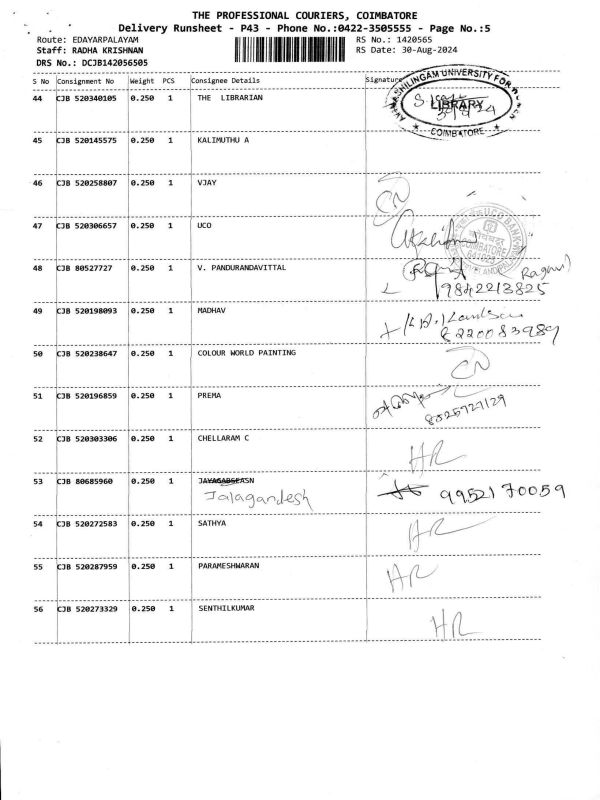 THE PROFESSIONAL COURIERS, COIMBATORE
Delivery Runsheet - P43 - Phone No.:0422-3505555 - Page No.:5
Route: EDAYARPALAYAM RS No.: 1420565
Staff: RADHA KRISHNAN RS Date: 30-Aug-2024
DRS No.: DCJB142056505
S No Consignment No Weight PCS Consignee Details Signature
44 CJB 520340105 0.250 1 THE LIBRARIAN
UNIVERSITY FOR
LIBRARY
COIMBATORE
45 CJB 520145575 0.250 1 KALIMUTHU A
46 CJB 520258807 0.250 1 VJAY
47 CJB 520306657 0.250 1 UCO
UCO BANK
COIMBATORE
48 CJB 80527727 0.250 1 V. PANDURANDAVITTAL
9842213825
49 CJB 520198093 0.250 1 MADHAV
8220083989
50 CJB 520238647 0.250 1 COLOUR WORLD PAINTING
51 CJB 520196859 0.250 1 PREMA
52 CJB 520303306 0.250 1 CHELLARAM C
HR
53 CJB 80685960 0.250 1
Jalagandesh 9952170059
54 CJB 520272583 0.250 1 SATHYA
HR
55 CJB 520287959 0.250 1 PARAMESHWARAN
HR
56 CJB 520273329 0.250 1 SENTHILKUMAR
HR